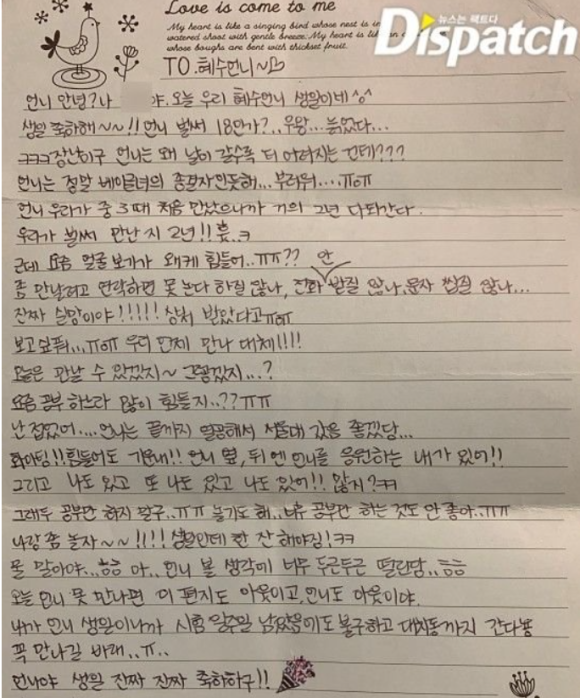 Love is come to me
My heart is like a singing bird whose nest is in
watered shoot with gentle breeze. My heart is like an
whose boughs are bent with thickset fruit.
뉴스는 팩트다
Dispatch
TO. 혜수언니~♡
언니 안녕? 나 야. 오늘 우리 혜수언니 생일이네^^
생일 축하해~~!! 언니 벌써 18인가?.. 우왕... 늙었다...
ㅋㅋㅋ장난이구 언니는 왜 날이 갈수록 더 어려지는 건데???
언니는 정말 베이글녀의 종결자인듯해... 부러워....ㅠㅇㅠ
언니 우리가 중3때 처음 만났으니까 거의 2년 다되간다.
우리가 벌써 만난 지 2년!! 훗.ㅋ
근데 요즘 얼굴 보기가 왜케 힘들어..ㅠㅠ?? 안
좀 만날려고 연락하면 못 논다 하질 않나, 전화 받질 않나, 문자 씹질 않나...
진짜 실망이야!!!!! 상처 받았다고ㅠㅇㅠ
보고싶퓨...ㅠㅇㅠ 우리 언제 만나 대체!!!!
오늘은 만날 수 있겠지~ 그렇겠지...?
요즘 공부 하느라 많이 힘들지..??ㅠㅠ
난 접었어.... 언니는 끝까지 열공해서 서울대 갔음 좋겠당...
화아팅!! 힘들어도 기운내!! 언니 옆, 뒤엔 언니를 응원하는 내가 있어!!
그리고 나도 있고 또 나도 있고 나도 있어!! 많지?ㅋㅋ
그래두 공부만 하지 말구..ㅠㅠ 놀기도 해..너무 공부만 하는 것도 안 좋아..ㅠㅠ
나랑 좀 놀자~~!!!! 생일인데 한 잔 해야짐!ㅋㅋ
물 말이야...흐흐 아.. 언니 볼 생각에 너무 두근두근 떨린담..흐흐
오늘 언니 못 만나면 이 편지도 아웃이고 언니도 아웃이야.
내가 언니 생일이니까 시험 일주일 남았음에도 불구하고 대치동까지 간다뿅
꼭 만나길 바래..ㅠ..
언니야 생일 진짜 진짜 축하하구!!